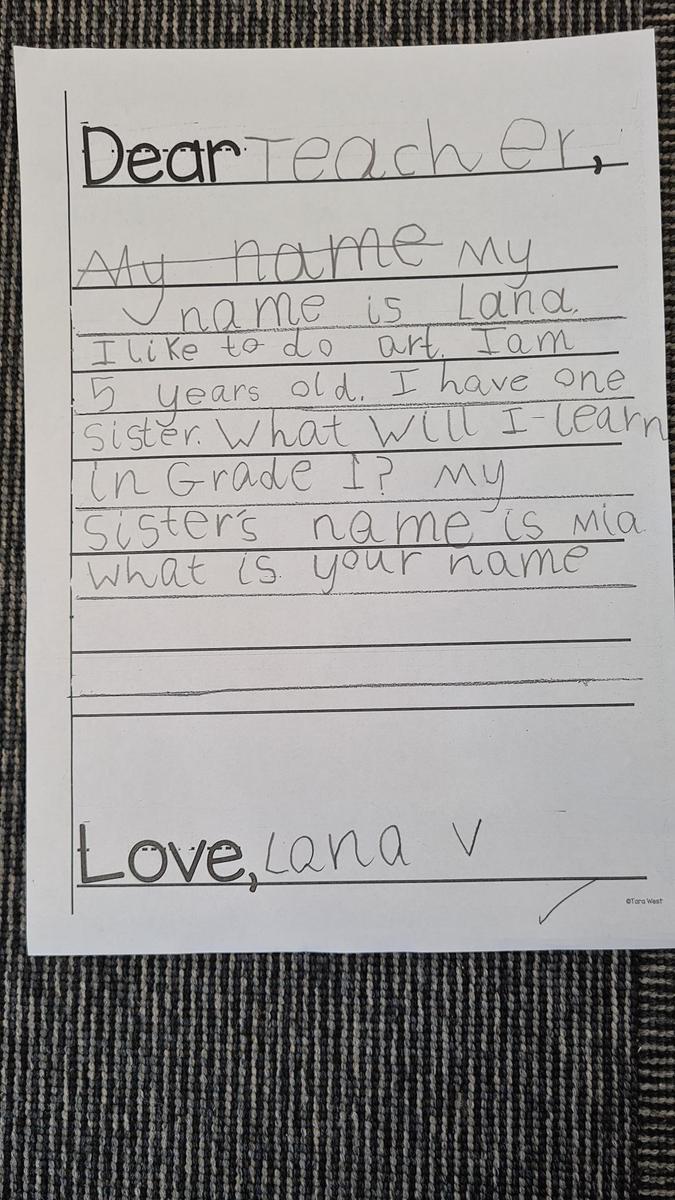 Dear Teacher,
My name My
name is Lana.
I like to do art. I am
5 years old. I have one
sister. What will I learn
in Grade 1? My
sister's name is Mia
What is your name
Love, Lana V
©Tara West